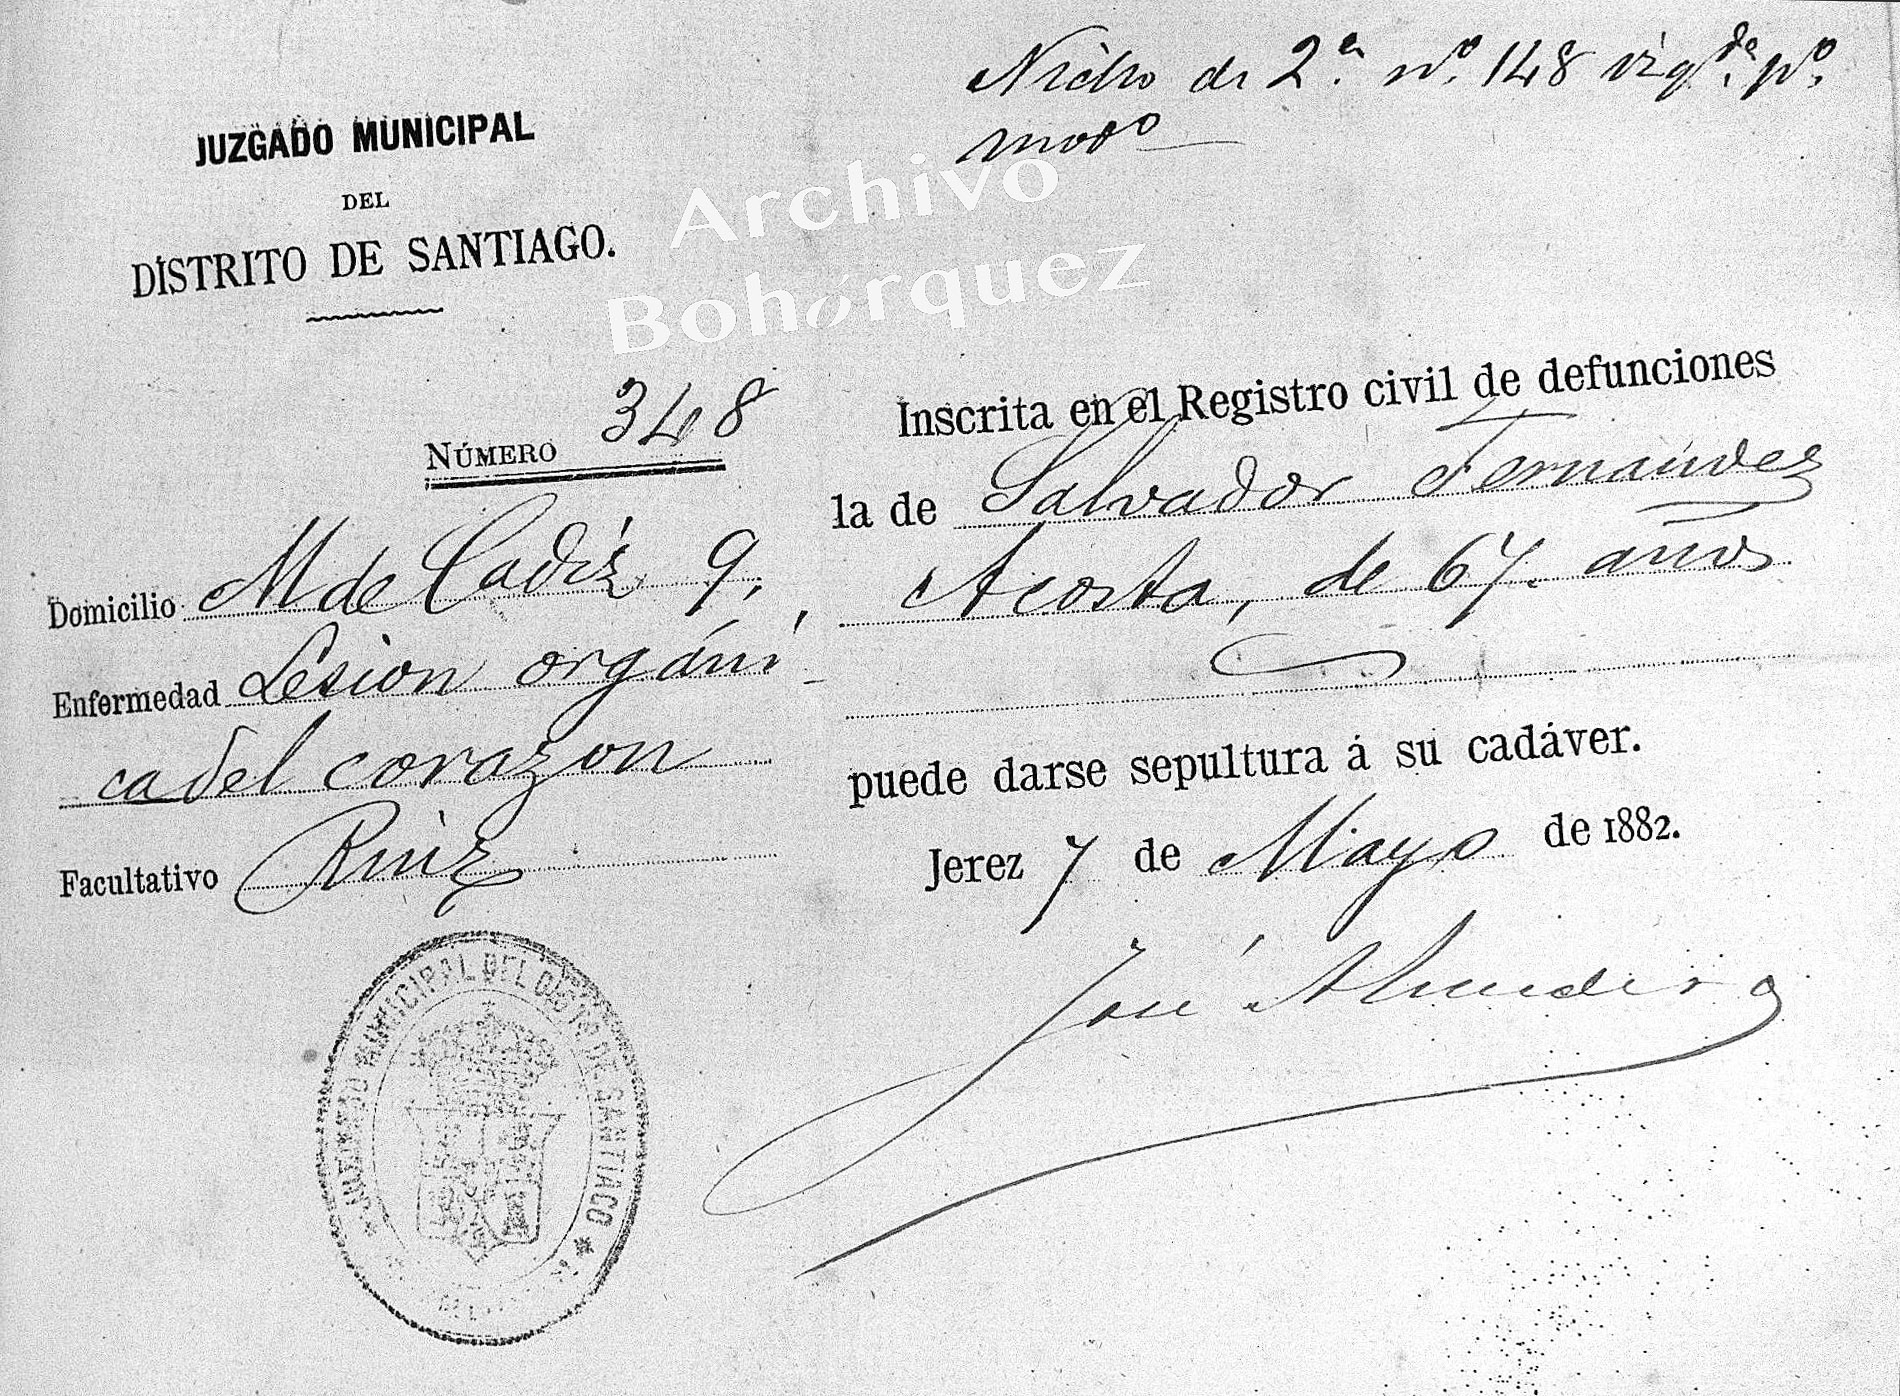 Nicho de 2.ª nº. 148 izqda. pº.
JUZGADO MUNICIPAL
DEL
DISTRITO DE SANTIAGO.
Archivo
Bohórquez
NÚMERO 348
Domicilio M de Cadiz 9.
Enfermedad Lesion orgáni
ca del corazon
Facultativo Ruiz
Inscrita en el Registro civil de defunciones
la de Salvador Fernandez
Acosta, de 67 años
puede darse sepultura á su cadáver.
Jerez 7 de Mayo de 1882.
José
JUZGADO MUNICIPAL DEL DISTO. DE SANTIAGO